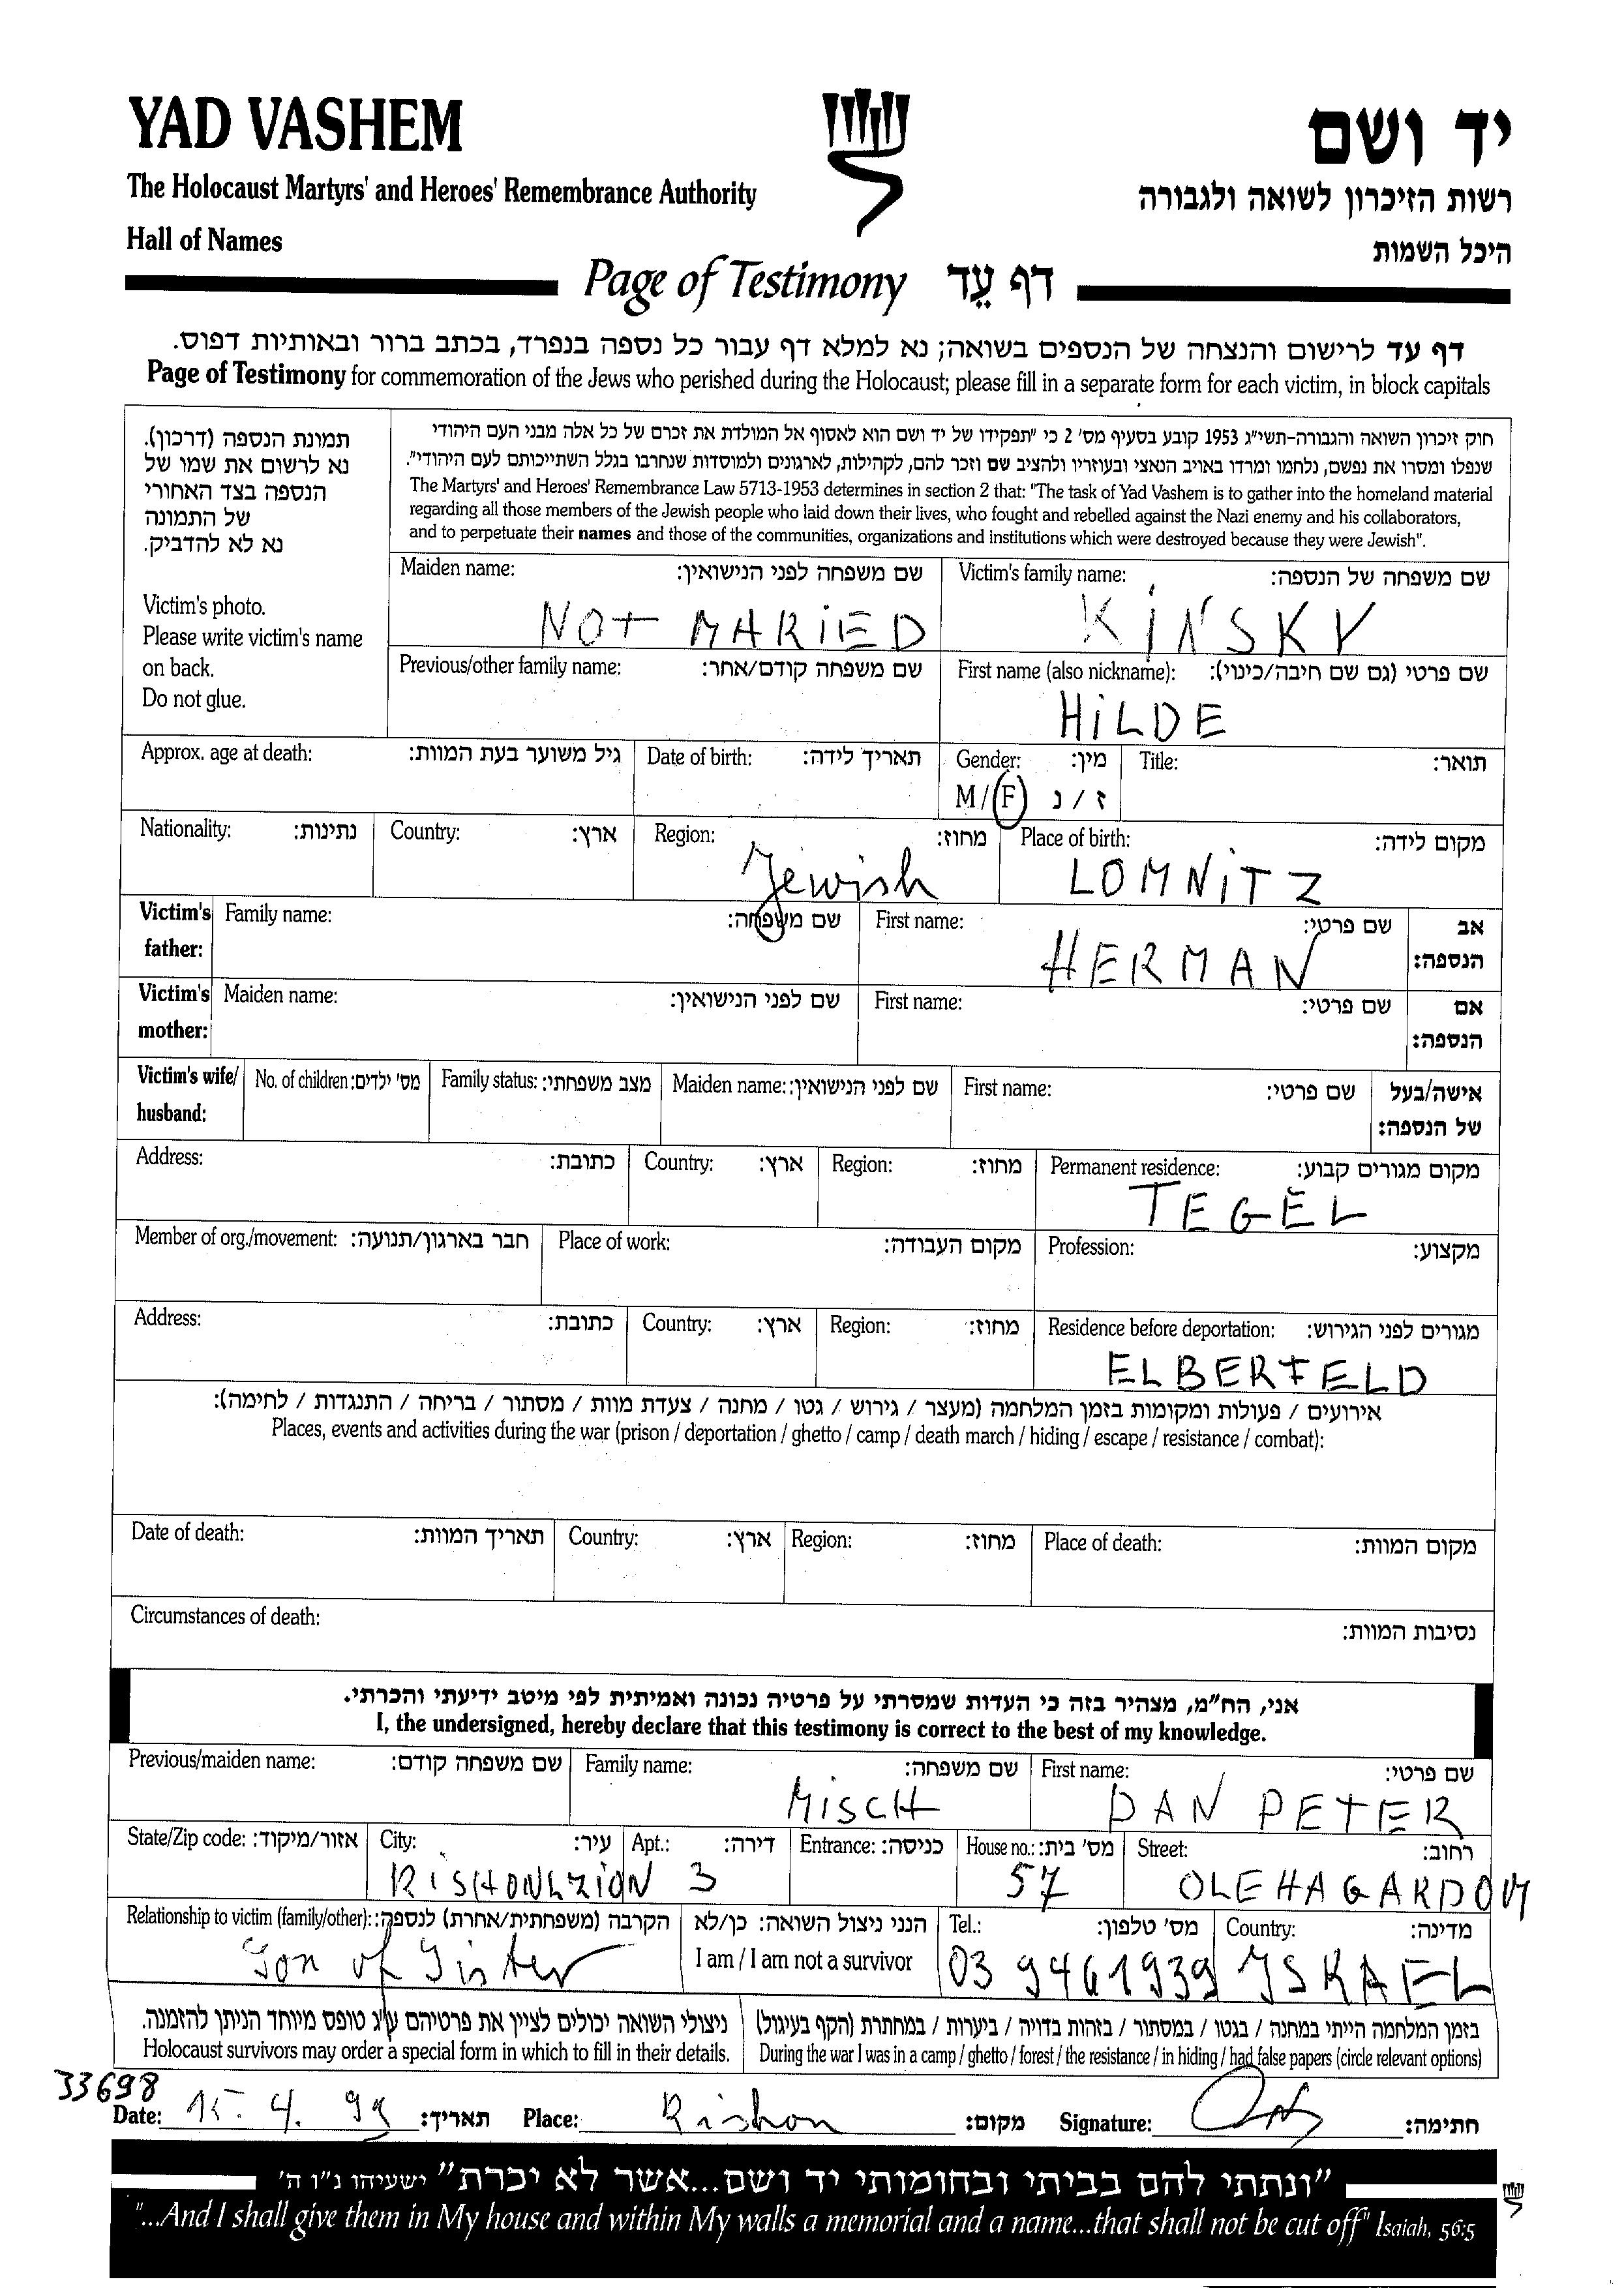 YAD VASHEM
יד ושם
The Holocaust Martyrs' and Heroes' Remembrance Authority
רשות הזיכרון לשואה ולגבורה
Hall of Names
היכל השמות
Page of Testimony דף עֵד
דף עד לרישום והנצחה של הנספים בשואה; נא למלא דף עבור כל נספה בנפרד, בכתב ברור ובאותיות דפוס.
Page of Testimony for commemoration of the Jews who perished during the Holocaust; please fill in a separate form for each victim, in block capitals
תמונת הנספה (דרכון).
נא לרשום את שמו של
הנספה בצד האחורי
של התמונה
נא לא להדביק.
Victim's photo.
Please write victim's name
on back.
Do not glue.
חוק זיכרון השואה והגבורה-תשי"ג 1953 קובע בסעיף מס' 2 כי "תפקידו של יד ושם הוא לאסוף אל המולדת את זכרם של כל אלה מבני העם היהודי
שנפלו ומסרו את נפשם, נלחמו ומרדו באויב הנאצי ובעוזריו ולהציב שם וזכר להם, לקהילות, לארגונים ולמוסדות שנחרבו בגלל השתייכותם לעם היהודי".
The Martyrs' and Heroes' Remembrance Law 5713-1953 determines in section 2 that: "The task of Yad Vashem is to gather into the homeland material
regarding all those members of the Jewish people who laid down their lives, who fought and rebelled against the Nazi enemy and his collaborators,
and to perpetuate their names and those of the communities, organizations and institutions which were destroyed because they were Jewish".
Maiden name: שם משפחה לפני הנישואין: Victim's family name: שם משפחה של הנספה:
NOT MARIED KINSKY
Previous/other family name: שם משפחה קודם/אחר: First name (also nickname): שם פרטי (גם שם חיבה/כינוי):
HILDE
Approx. age at death: גיל משוער בעת המוות: Date of birth: תאריך לידה: Gender: מין: Title: תואר:
M/F ז/נ
Nationality: נתינות: Country: ארץ: Region: מחוז: Place of birth: מקום לידה:
Jewish LOMNITZ
Victim's father: Family name: שם משפחה: First name: שם פרטי: אב הנספה:
HERMAN
Victim's mother: Maiden name: שם לפני הנישואין: First name: שם פרטי: אם הנספה:
Victim's wife/husband: No. of children: מס' ילדים: Family status: מצב משפחתי: Maiden name: שם לפני הנישואין: First name: שם פרטי: אישה/בעל של הנספה:
Address: כתובת: Country: ארץ: Region: מחוז: Permanent residence: מקום מגורים קבוע:
TEGEL
Member of org./movement: חבר בארגון/תנועה: Place of work: מקום העבודה: Profession: מקצוע:
Address: כתובת: Country: ארץ: Region: מחוז: Residence before deportation: מגורים לפני הגירוש:
ELBERFELD
אירועים / פעולות ומקומות בזמן המלחמה (מעצר / גירוש / גטו / מחנה / צעדת מוות / מסתור / בריחה / התנגדות / לחימה):
Places, events and activities during the war (prison / deportation / ghetto / camp / death march / hiding / escape / resistance / combat):
Date of death: תאריך המוות: Country: ארץ: Region: מחוז: Place of death: מקום המוות:
Circumstances of death: נסיבות המוות:
אני, הח"מ, מצהיר בזה כי העדות שמסרתי על פרטיה נכונה ואמיתית לפי מיטב ידיעתי והכרתי.
I, the undersigned, hereby declare that this testimony is correct to the best of my knowledge.
Previous/maiden name: שם משפחה קודם: Family name: שם משפחה: First name: שם פרטי:
MISCH DAN PETER
State/Zip code: אזור/מיקוד: City: עיר: Apt.: דירה: Entrance: כניסה: House no.: מס' בית: Street: רחוב:
RISHONLZION 3 57 OLEHAGARDOM
Relationship to victim (family/other): הקרבה (משפחתית/אחרת) לנספה: הנני ניצול השואה: כן/לא Tel.: מס' טלפון: Country: מדינה:
Son of Sister I am / I am not a survivor 03 9461939 ISRAEL
ניצולי השואה יכולים לציין את פרטיהם ע"ג טופס מיוחד הניתן להזמנה. בזמן המלחמה הייתי במחנה / בגטו / במסתור / בזהות בדויה / ביערות / במחתרת (הקף בעיגול)
Holocaust survivors may order a special form in which to fill in their details. During the war I was in a camp / ghetto / forest / the resistance / in hiding / had false papers (circle relevant options)
33698
Date: 15. 4. 99 תאריך: Place: Rishon מקום: Signature: חתימה:
"ונתתי להם בביתי ובחומותי יד ושם...אשר לא יכרת" ישעיהו נ"ו ה'
"...And I shall give them in My house and within My walls a memorial and a name...that shall not be cut off" Isaiah, 56:5